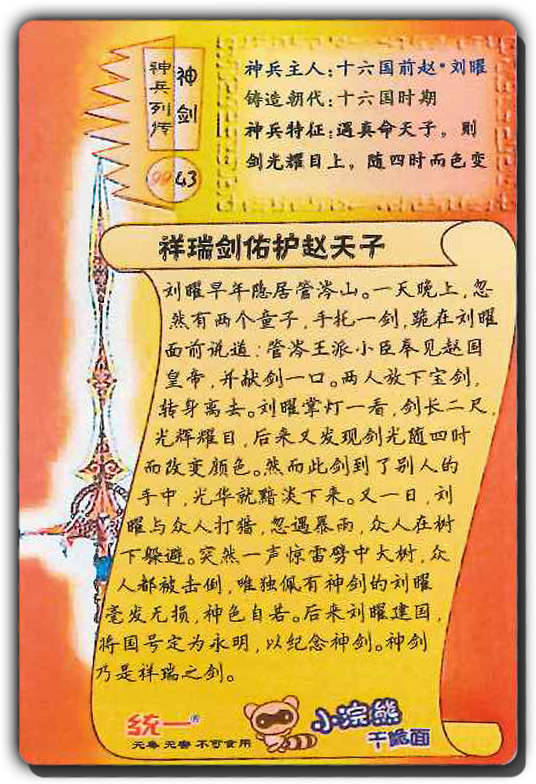 神兵列传
神剑
99 43
神兵主人:十六国前赵·刘曜
铸造朝代:十六国时期
神兵特征:遇真命天子,则
剑光耀目上,随四时而色变
祥瑞剑佑护赵天子
刘曜早年隐居管涔山。一天晚上,忽
然有两个童子,手托一剑,跪在刘曜
面前说道:管涔王派小臣奉见赵国
皇帝,并献剑一口。两人放下宝剑,
转身离去。刘曜掌灯一看,剑长二尺,
光辉耀目,后来又发现剑光随四时
而改变颜色。然而此剑到了别人的
手中,光华就黯淡下来。又一日,刘
曜与众人打猎,忽遇暴雨,众人在树
下躲避。突然一声惊雷劈中大树,众
人都被击倒,唯独佩有神剑的刘曜
毫发无损,神色自若。后来刘曜建国,
将国号定为永明,以纪念神剑。神剑
乃是祥瑞之剑。
统一®
无毒 无害 不可食用
小浣熊
干脆面